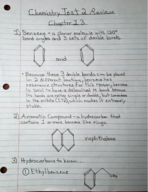 Chemistry Test 2 Review
Chapter 13
1) Benzene - a planar molecule with 120°
bond angles and 3 sets of double bonds.
and
• Because these 3 double bonds can be placed
in 2 different locations, benzene has
resonance structures. For this reason, benzene
is said to have a delocalized π bond because
its bonds are neither single or double, but somewhere
in the middle (1.5), which makes it extremely
stable.
2) Aromatic Compound - a hydrocarbon that
contains 1 or more benzene like rings.
naphthalene
3) Hydrocarbons to know...
① Ethylbenzene